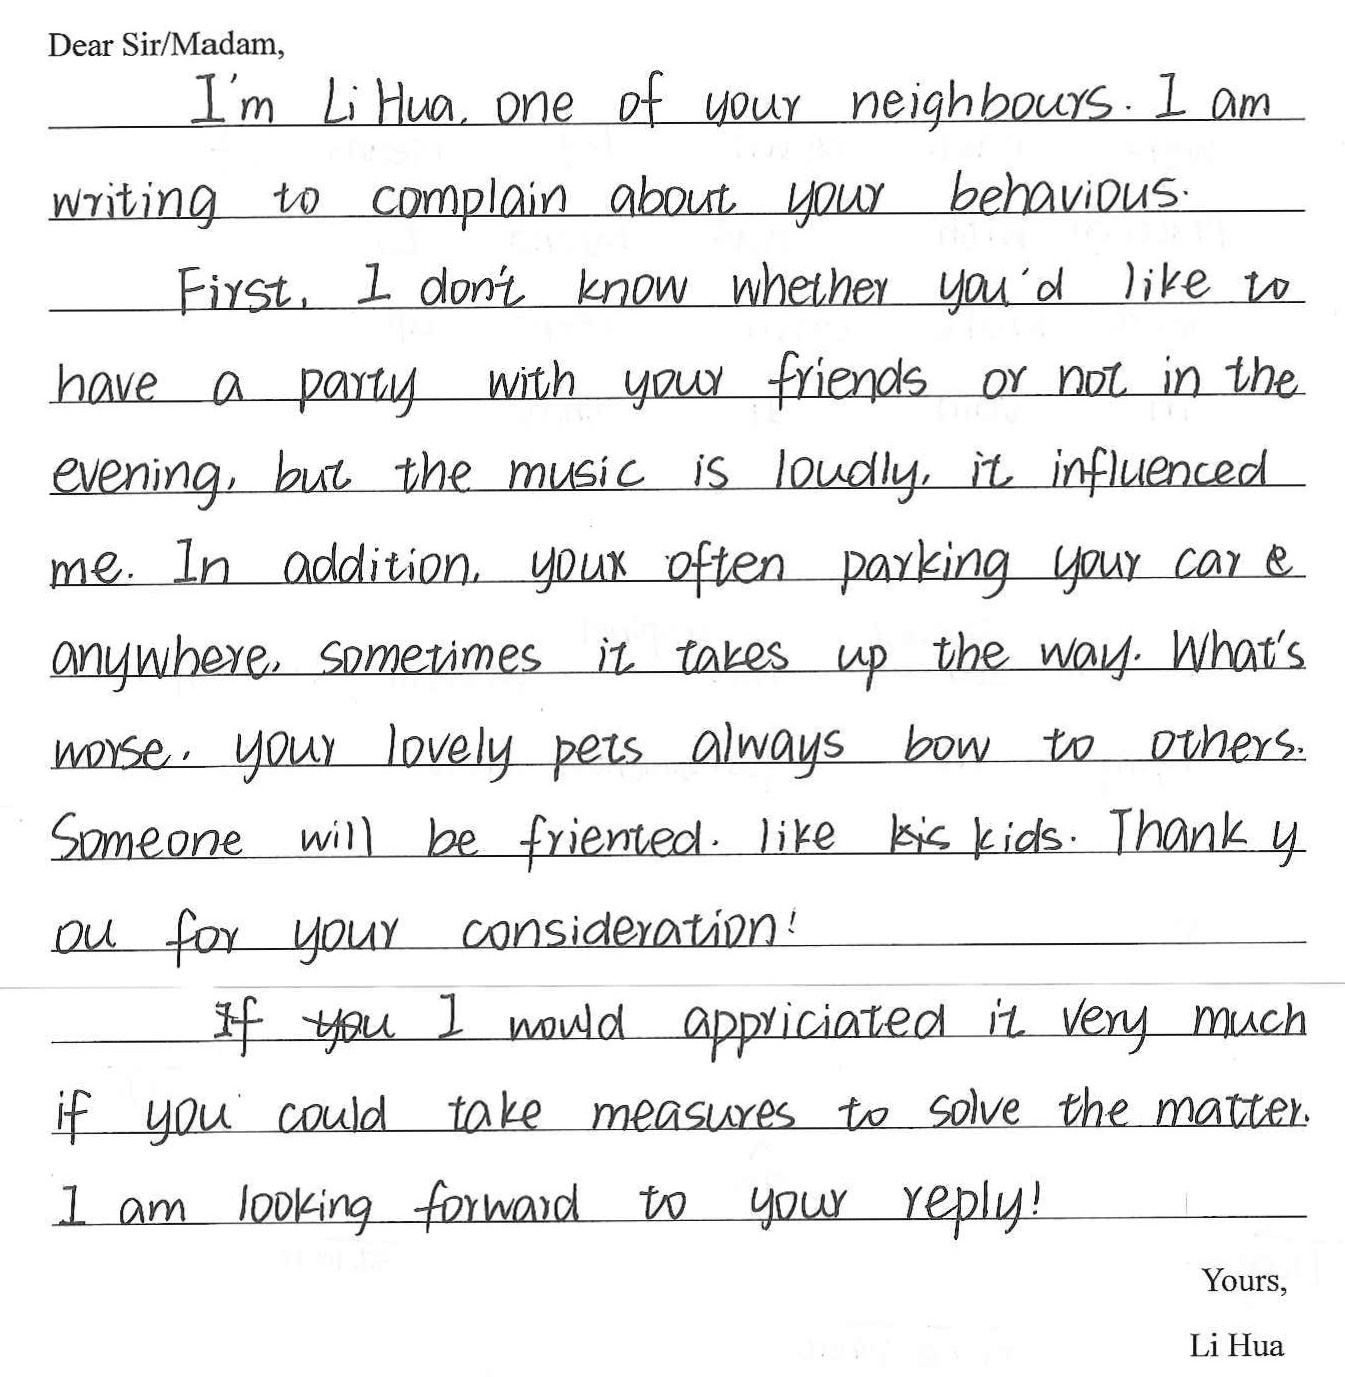 Dear Sir/Madam,
I'm Li Hua, one of your neighbours. I am
writing to complain about your behavious.
First, I don't know whether you'd like to
have a party with your friends or not in the
evening, but the music is loudly, it influenced
me. In addition, your often parking your car e
anywhere, sometimes it takes up the way. What's
worse, your lovely pets always bow to others.
Someone will be friented. like kis kids. Thank y
ou for your consideration!
If you I would appriciated it very much
if you could take measures to solve the matter.
I am looking forward to your reply!
Yours,
Li Hua